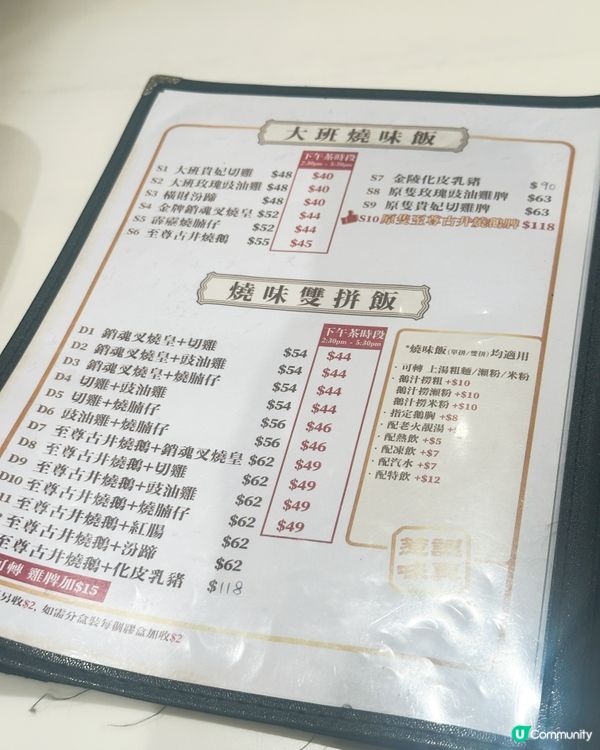 大班燒味飯
下午茶時段
2:30pm - 5:30pm
S1 大班貴妃切雞 $48 $40
S2 大班玫瑰豉油雞 $48 $40
S3 橫財汾蹄 $48 $40
S4 金牌銷魂叉燒皇 $52 $44
S5 霹靂燒腩仔 $52 $44
S6 至尊古井燒鵝 $55 $45
S7 金陵化皮乳豬 $90
S8 原隻玫瑰豉油雞髀 $63
S9 原隻貴妃切雞髀 $63
S10 原隻至尊古井燒鵝髀 $118
燒味雙拼飯
下午茶時段
2:30pm - 5:30pm
D1 銷魂叉燒皇+切雞 $54 $44
D2 銷魂叉燒皇+豉油雞 $54 $44
D3 銷魂叉燒皇+燒腩仔 $54 $44
D4 切雞+豉油雞 $54 $44
D5 切雞+燒腩仔 $56 $46
D6 豉油雞+燒腩仔 $56 $46
D7 至尊古井燒鵝+銷魂叉燒皇 $62 $49
D8 至尊古井燒鵝+切雞 $62 $49
D9 至尊古井燒鵝+豉油雞 $62 $49
D10 至尊古井燒鵝+燒腩仔 $62 $49
11 至尊古井燒鵝+紅腸 $62
至尊古井燒鵝+汾蹄 $62
至尊古井燒鵝+化皮乳豬 $118
可轉 雞髀加$15
另收$2, 如需分盒裝每個膠盒加收$2
*燒味飯(單拼/雙拼)均適用
· 可轉 上湯粗麵/瀨粉/米粉
· 鵝汁撈粗 +$10
鵝汁撈瀨粉 +$10
鵝汁撈米粉 +$10
· 指定鵝胸 +$8
· 配老火靚湯
· 配熱飲 +$5
· 配凍飲 +$7
· 配汽水 +$7
· 配特飲 +$12
U Community